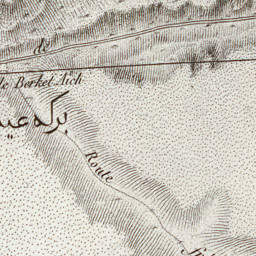 de
Berket Aich
بركه عيش
Route